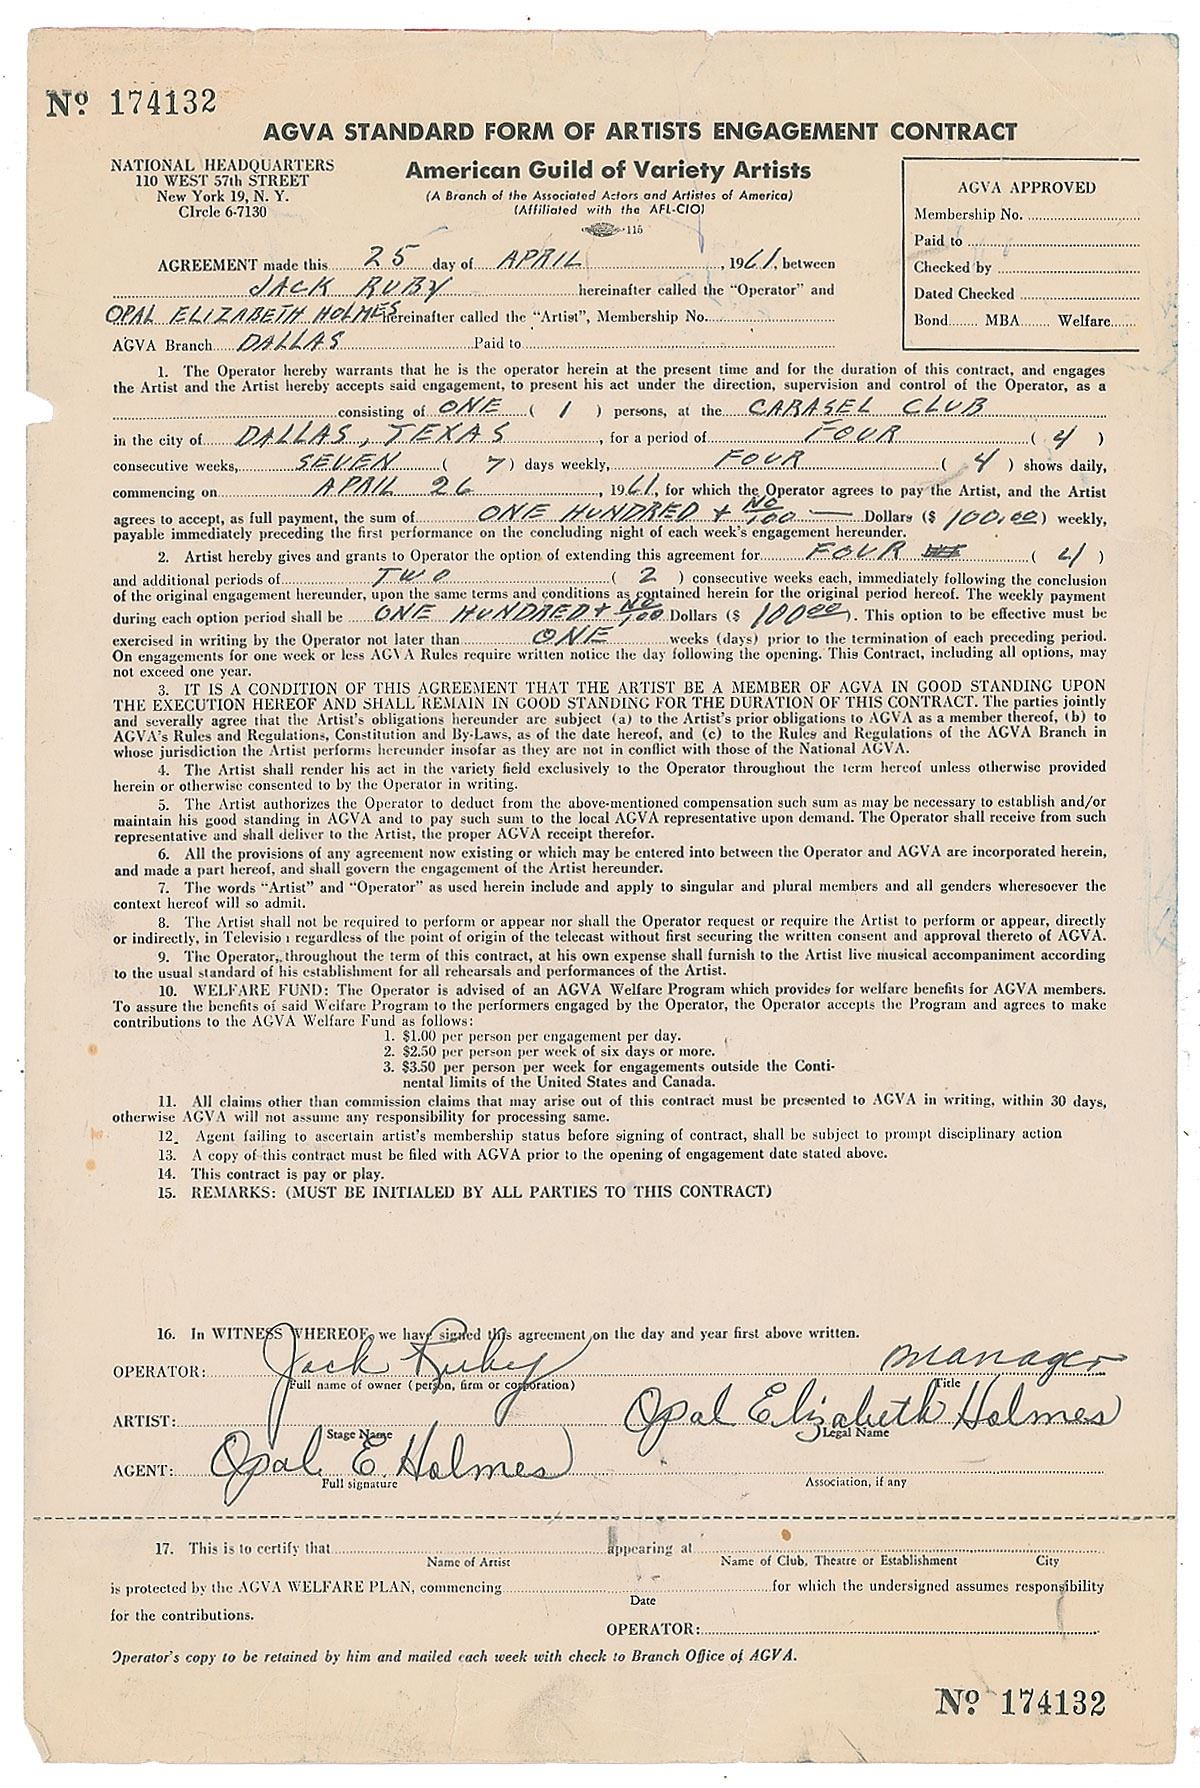 No. 174132
AGVA STANDARD FORM OF ARTISTS ENGAGEMENT CONTRACT
NATIONAL HEADQUARTERS
110 WEST 57th STREET
New York 19, N. Y.
CIrcle 6-7130
American Guild of Variety Artists
(A Branch of the Associated Actors and Artistes of America)
(Affiliated with the AFL-CIO)
115
AGVA APPROVED
Membership No.
Paid to
Checked by
Dated Checked
Bond MBA Welfare
AGREEMENT made this 25 day of APRIL, 1961, between
JACK RUBY hereinafter called the "Operator" and
OPAL ELIZABETH HOLMES hereinafter called the "Artist", Membership No.
AGVA Branch DALLAS Paid to
1. The Operator hereby warrants that he is the operator herein at the present time and for the duration of this contract, and engages
the Artist and the Artist hereby accepts said engagement, to present his act under the direction, supervision and control of the Operator, as a
consisting of ONE ( 1 ) persons, at the CARASEL CLUB
in the city of DALLAS, TEXAS, for a period of FOUR ( 4 )
consecutive weeks, SEVEN ( 7 ) days weekly, FOUR ( 4 ) shows daily,
commencing on APRIL 26, 1961, for which the Operator agrees to pay the Artist, and the Artist
agrees to accept, as full payment, the sum of ONE HUNDRED + NO/100 — Dollars ($ 100.00) weekly,
payable immediately preceding the first performance on the concluding night of each week's engagement hereunder.
2. Artist hereby gives and grants to Operator the option of extending this agreement for FOUR ( 4 )
and additional periods of TWO ( 2 ) consecutive weeks each, immediately following the conclusion
of the original engagement hereunder, upon the same terms and conditions as contained herein for the original period hereof. The weekly payment
during each option period shall be ONE HUNDRED + NO/100 Dollars ($ 100 00). This option to be effective must be
exercised in writing by the Operator not later than ONE weeks (days) prior to the termination of each preceding period.
On engagements for one week or less AGVA Rules require written notice the day following the opening. This Contract, including all options, may
not exceed one year.
3. IT IS A CONDITION OF THIS AGREEMENT THAT THE ARTIST BE A MEMBER OF AGVA IN GOOD STANDING UPON
THE EXECUTION HEREOF AND SHALL REMAIN IN GOOD STANDING FOR THE DURATION OF THIS CONTRACT. The parties jointly
and severally agree that the Artist's obligations hereunder are subject (a) to the Artist's prior obligations to AGVA as a member thereof, (b) to
AGVA's Rules and Regulations, Constitution and By-Laws, as of the date hereof, and (c) to the Rules and Regulations of the AGVA Branch in
whose jurisdiction the Artist performs hereunder insofar as they are not in conflict with those of the National AGVA.
4. The Artist shall render his act in the variety field exclusively to the Operator throughout the term hereof unless otherwise provided
herein or otherwise consented to by the Operator in writing.
5. The Artist authorizes the Operator to deduct from the above-mentioned compensation such sum as may be necessary to establish and/or
maintain his good standing in AGVA and to pay such sum to the local AGVA representative upon demand. The Operator shall receive from such
representative and shall deliver to the Artist, the proper AGVA receipt therefor.
6. All the provisions of any agreement now existing or which may be entered into between the Operator and AGVA are incorporated herein,
and made a part hereof, and shall govern the engagement of the Artist hereunder.
7. The words "Artist" and "Operator" as used herein include and apply to singular and plural members and all genders wheresoever the
context hereof will so admit.
8. The Artist shall not be required to perform or appear nor shall the Operator request or require the Artist to perform or appear, directly
or indirectly, in Television regardless of the point of origin of the telecast without first securing the written consent and approval thereto of AGVA.
9. The Operator, throughout the term of this contract, at his own expense shall furnish to the Artist live musical accompaniment according
to the usual standard of his establishment for all rehearsals and performances of the Artist.
10. WELFARE FUND: The Operator is advised of an AGVA Welfare Program which provides for welfare benefits for AGVA members.
To assure the benefits of said Welfare Program to the performers engaged by the Operator, the Operator accepts the Program and agrees to make
contributions to the AGVA Welfare Fund as follows:
1. $1.00 per person per engagement per day.
2. $2.50 per person per week of six days or more.
3. $3.50 per person per week for engagements outside the Conti-
nental limits of the United States and Canada.
11. All claims other than commission claims that may arise out of this contract must be presented to AGVA in writing, within 30 days,
otherwise AGVA will not assume any responsibility for processing same.
12. Agent failing to ascertain artist's membership status before signing of contract, shall be subject to prompt disciplinary action
13. A copy of this contract must be filed with AGVA prior to the opening of engagement date stated above.
14. This contract is pay or play.
15. REMARKS: (MUST BE INITIALED BY ALL PARTIES TO THIS CONTRACT)
16. In WITNESS WHEREOF, we have signed this agreement on the day and year first above written.
OPERATOR: Jack Ruby manager
Full name of owner (person, firm or corporation) Title
ARTIST: Opal Elizabeth Holmes
Stage Name Legal Name
AGENT: Opal E. Holmes
Full signature Association, if any
17. This is to certify that appearing at
Name of Artist Name of Club, Theatre or Establishment City
is protected by the AGVA WELFARE PLAN, commencing for which the undersigned assumes responsibility
Date
for the contributions.
OPERATOR:
Operator's copy to be retained by him and mailed each week with check to Branch Office of AGVA.
No. 174132